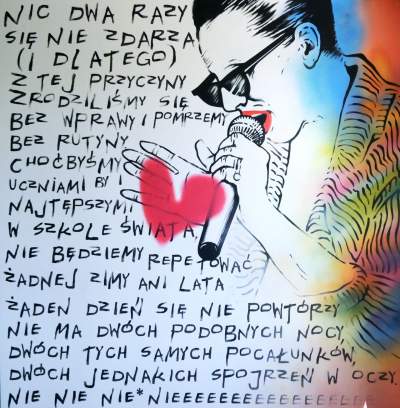 NIC DWA RAZY
SIĘ NIE ZDARZA
(I DLATEGO)
Z TEJ PRZYCZYNY
ZRODZILIŚMY SIĘ
BEZ WPRAWY I POMRZEMY
BEZ RUTYNY.
CHOĆBYŚMY
UCZNIAMI BYLI
NAJTĘPSZYMI
W SZKOLE ŚWIATA,
NIE BĘDZIEMY REPETOWAĆ
ŻADNEJ ZIMY ANI LATA
ŻADEN DZIEŃ SIĘ NIE POWTÓRZY
NIE MA DWÓCH PODOBNYCH NOCY,
DWÓCH TYCH SAMYCH POCAŁUNKÓW,
DWÓCH JEDNAKICH SPOJRZEŃ W OCZY.
NIE NIE NIE*NIEEEEEEEEEEEEEEEEE